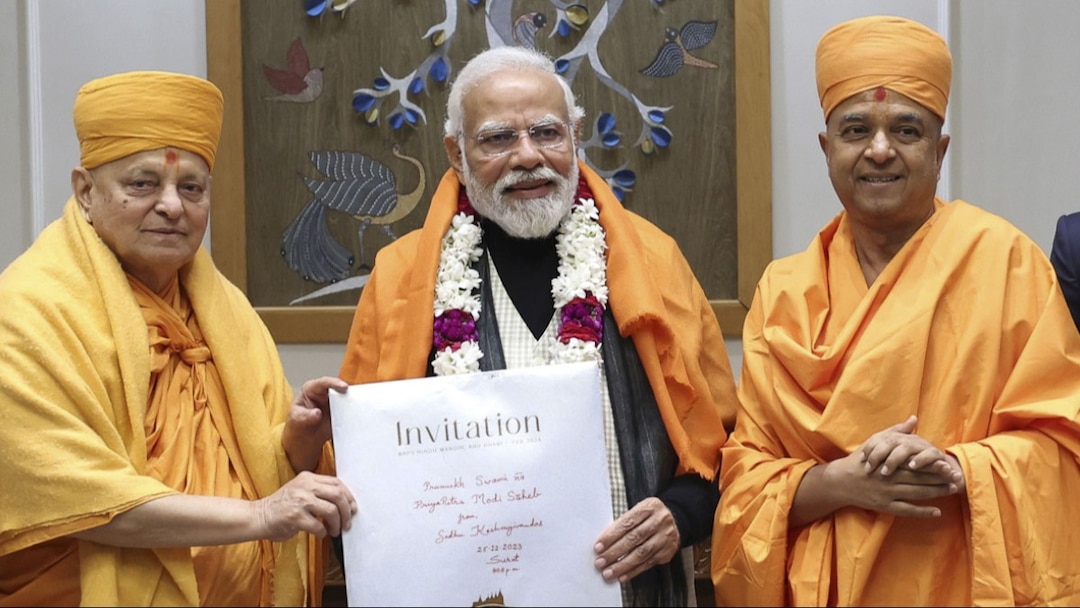 Invitation
BAPS HINDU MANDIR, ABU DHABI - FEB 2024
Pramukh Swami
Priya Putra Modi Saheb
from
Sadhu
25-12-2023
Surat